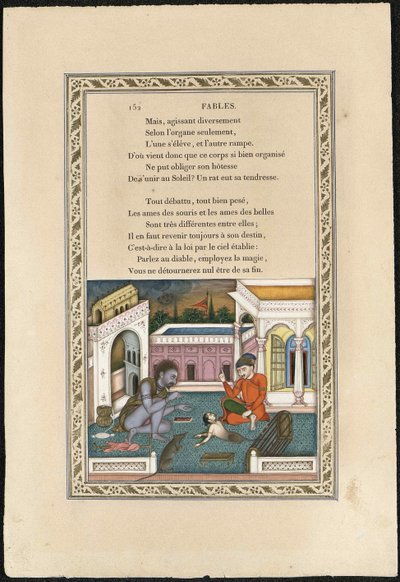 152 FABLES.
Mais, agissant diversement
Selon l'organe seulement,
L'une s'élève, et l'autre rampe.
D'où vient donc que ce corps si bien organisé
Ne put obliger son hôtesse
De s'unir au Soleil? Un rat eut sa tendresse.
Tout débattu, tout bien pesé,
Les ames des souris et les ames des belles
Sont très différentes entre elles;
Il en faut revenir toujours à son destin,
C'est-à-dire à la loi par le ciel établie:
Parlez au diable, employez la magie,
Vous ne détournerez nul être de sa fin.